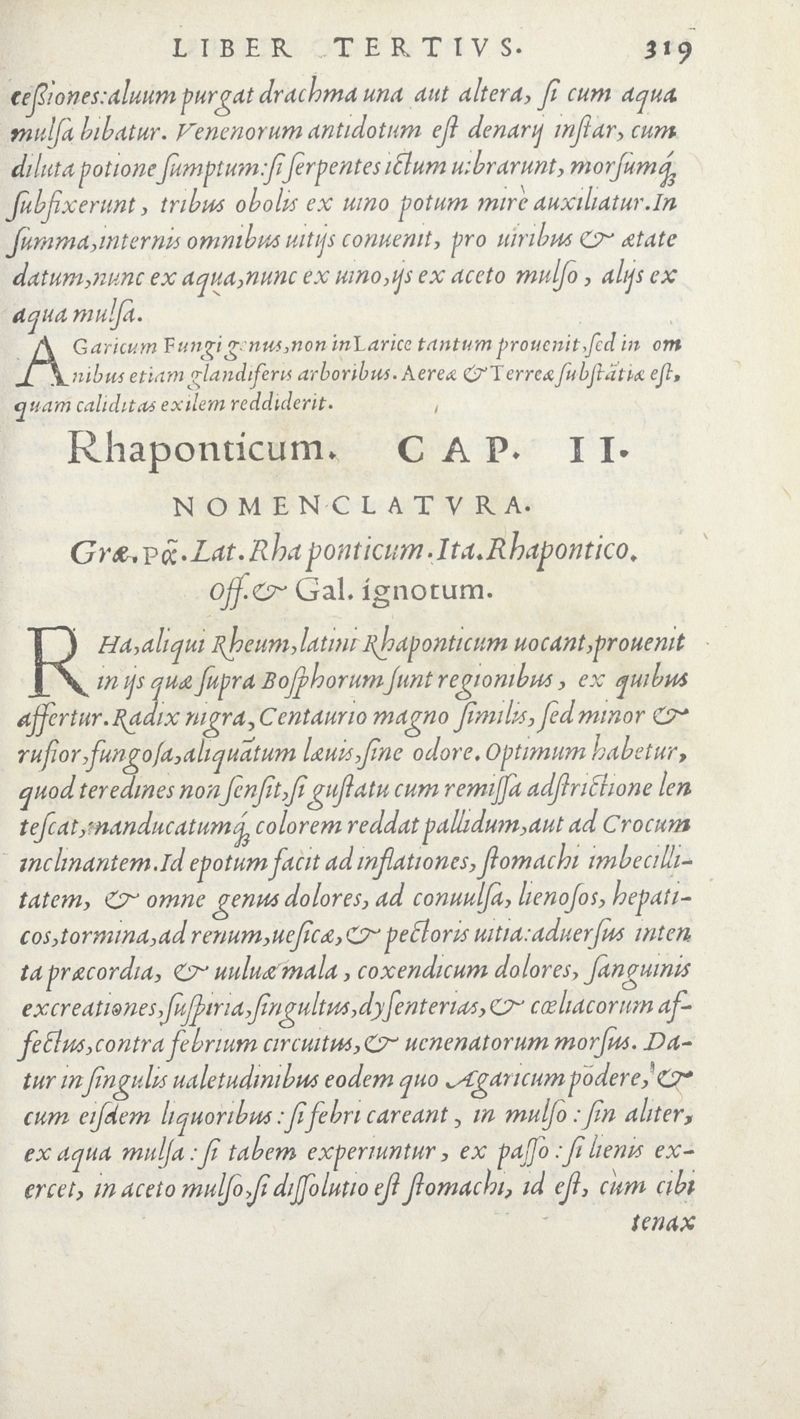 LIBER TERTIVS. 319
ceßiones:aluum purgat drachma una aut altera, ſi cum aqua
mulſa bibatur. Venenorum antidotum eſt denarij inſtar, cum
diluta potione ſumptum:ſi ſerpentes ictum uibrarunt, morſumq́;
ſubfixerunt, tribus obolis ex uino potum mirè auxiliatur.In
ſumma,internis omnibus uitijs conuenit, pro uiribus & ætate
datum,nunc ex aqua,nunc ex uino,ijs ex aceto mulſo, alijs ex
aqua mulſa.
AGaricum Fungi genus,non in Larice tantum prouenit,ſed in om
nibus etiam glandiferis arboribus. Aereæ & Terreæ ſubſtãtiæ eſt,
quam caliditas exilem reddiderit.
Rhaponticum. CAP. II.
NOMENCLATVRA.
Græ. ρᾶ. Lat. Rha ponticum. Ita. Rhapontico.
Off. & Gal. ignotum.
RHa,aliqui Rheum,latini Rhaponticum uocant,prouenit
in ijs quæ ſupra Boſphorum ſunt regionibus, ex quibus
affertur. Radix nigra, Centaurio magno ſimilis, ſed minor &
rufior,fungoſa,aliquãtum læuis,ſine odore. Optimum habetur,
quod teredines non ſenſit,ſi guſtatu cum remiſſa adſtrictione len
teſcat,manducatumq́; colorem reddat pallidum,aut ad Crocum
inclinantem.Id epotum facit ad inflationes, ſtomachi imbecilli-
tatem, & omne genus dolores, ad conuulſa, lienoſos, hepati-
cos,tormina,ad renum,ueſicæ,& pectoris uitia:aduerſus inten
ta præcordia, & uuluæ mala, coxendicum dolores, ſanguinis
excreationes,ſuſpiria,ſingultus,dyſenterias,& cœliacorum af-
fectus,contra febrium circuitus,& uenenatorum morſus. Da-
tur in ſingulis ualetudinibus eodem quo Agaricum põdere, &
cum eiſdem liquoribus: ſi febri careant, in mulſo: ſin aliter,
ex aqua mulſa: ſi tabem experiuntur, ex paſſo: ſi lienis ex-
ercet, in aceto mulſo,ſi diſſolutio eſt ſtomachi, id eſt, cùm cibi
tenax